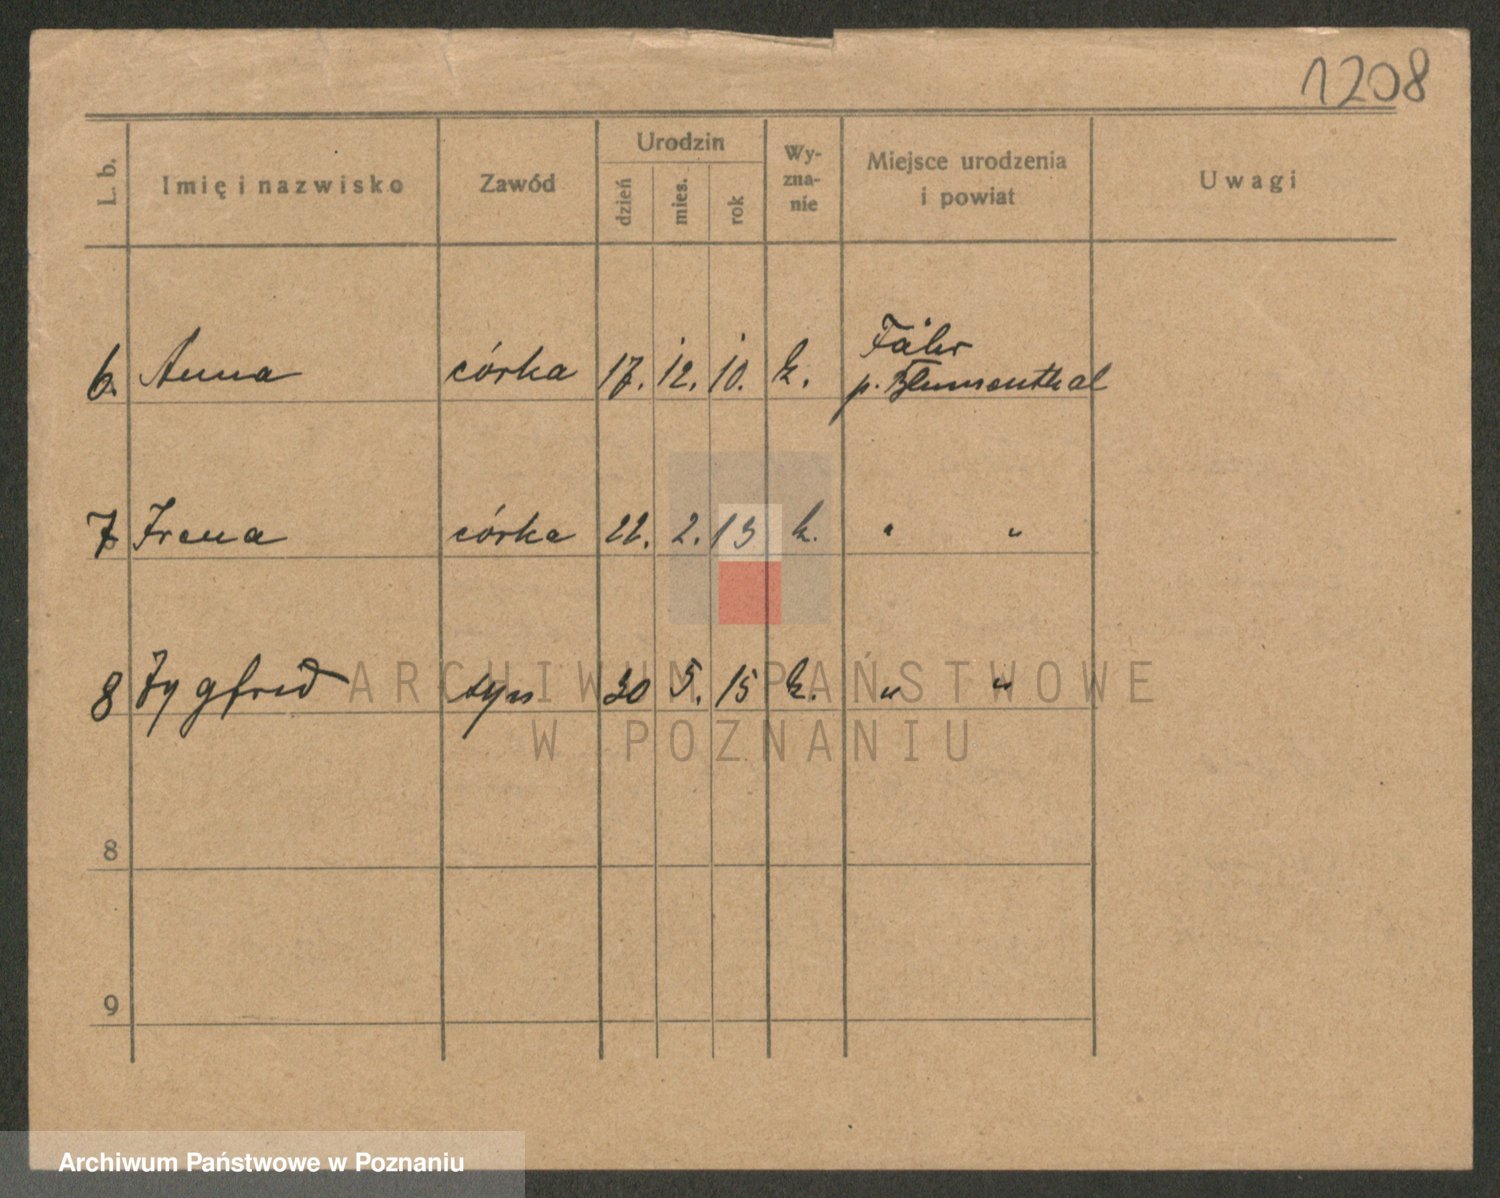 1208
L. b. Imię i nazwisko Zawód Urodzin dzień mies. rok Wy-zna-nie Miejsce urodzenia i powiat Uwagi
6. Anna córka 17. 12. 10. k. Fähr
p. Blumenthal
7 Irena córka 22. 2. 13 k. " "
8 Zygfrid syn 30 5. 15 k. " "
8
9
ARCHIWUM PAŃSTWOWE
W POZNANIU
Archiwum Państwowe w Poznaniu